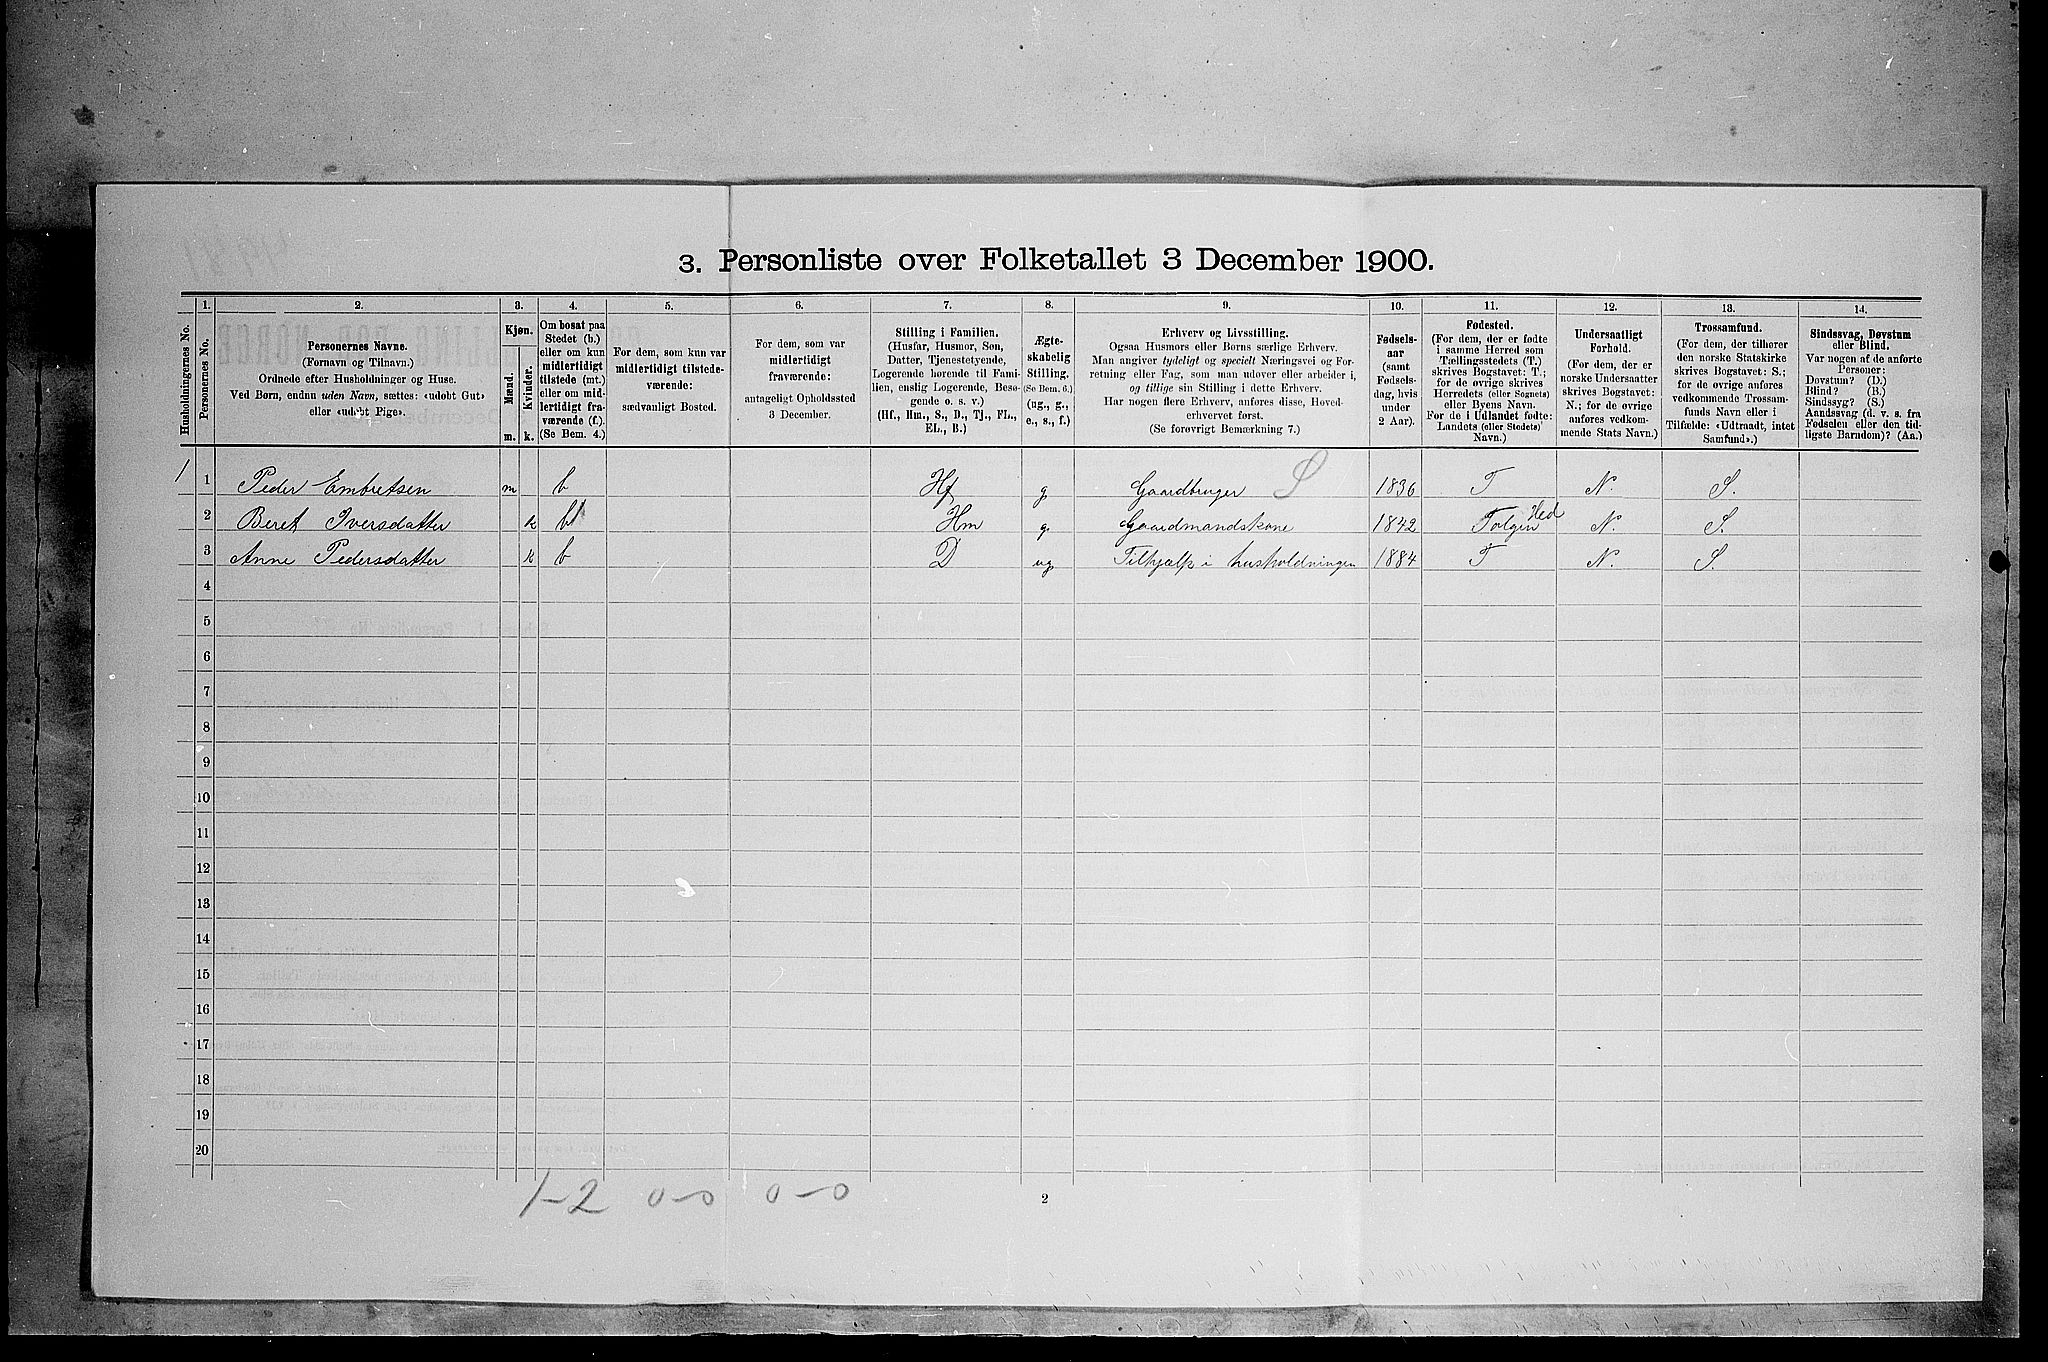 3. Personliste over Folketallet 3 December 1900.
1. 2. 3. 4. 5. 6. 7. 8. 9. 10. 11. 12. 13. 14.
Husholdningernes No.
Personernes No.
Personernes Navne.
(Fornavn og Tilnavn.)
Ordnede efter Husholdninger og Huse.
Ved Børn, endnu uden Navn, sættes: «udøbt Gut»
eller «udøbt Pige».
Kjøn.
Mænd.
Kvinder.
m. k.
Om bosat paa
Stedet (b.)
eller om kun
midlertidigt
tilstede (mt.)
eller om mid-
lertidigt fra-
værende (f.).
(Se Bem. 4.)
For dem, som kun var
midlertidigt tilstede-
værende:
sædvanligt Bosted.
For dem, som var
midlertidigt
fraværende:
antageligt Opholdssted
3 December.
Stilling i Familien.
(Husfar, Husmor, Søn,
Datter, Tjenestetyende,
Logerende hørende til Fami-
lien, enslig Logerende, Besø-
gende o. s. v.)
(Hf., Hm., S., D., Tj., FL.,
EL., B.)
Ægte-
skabelig
Stilling.
(Se Bem. 6.)
(ug., g.,
e., s., f.)
Erhverv og Livsstilling.
Ogsaa Husmors eller Børns særlige Erhverv.
Man angiver tydeligt og specielt Næringsvei og For-
retning eller Fag, som man udøver eller arbeider i,
og tillige sin Stilling i dette Erhverv.
Har nogen flere Erhverv, anføres disse, Hoved-
erhvervet først.
(Se forøvrigt Bemærkning 7.)
Fødsels-
aar
(samt
Fødsels-
dag, hvis
under
2 Aar).
Fødested.
(For dem, der er fødte
i samme Herred som
Tællingsstedets (T.)
skrives Bogstavet: T.;
for de øvrige skrives
Herredets (eller Sognets)
eller Byens Navn.
For de i Udlandet fødte:
Landets (eller Stedets)
Navn.)
Undersaatligt
Forhold.
(For dem, der er
norske Undersaatter
skrives Bogstavet:
N.; for de øvrige
anføres vedkom-
mende Stats Navn.)
Trossamfund.
(For dem, der tilhører
den norske Statskirke
skrives Bogstavet: S.;
for de øvrige anføres
vedkommende Trossam-
funds Navn eller i
Tilfælde: «Udtraadt, intet
Samfund».)
Sindssvag, Døvstum
eller Blind.
Var nogen af de anførte
Personer:
Døvstum? (D.)
Blind? (B.)
Sindssyg? (S.)
Aandssvag (d. v. s. fra
Fødselen eller den tid-
ligste Barndom)? (Aa.)
1 1 Peder Embretsen m b Hf g. Gaardbruger S 1836 T N. S.
2 Beret Iversdatter k b Hm g. Gaardmandskone 1842 Tolgen Hed N. S.
3 Anne Pedersdatter k b D ug. Tilhjælp i husholdningen 1884 T N. S.
4
5
6
7
8
9
10
11
12
13
14
15
16
17
18
19
20
1-2 0-0 0-0
2